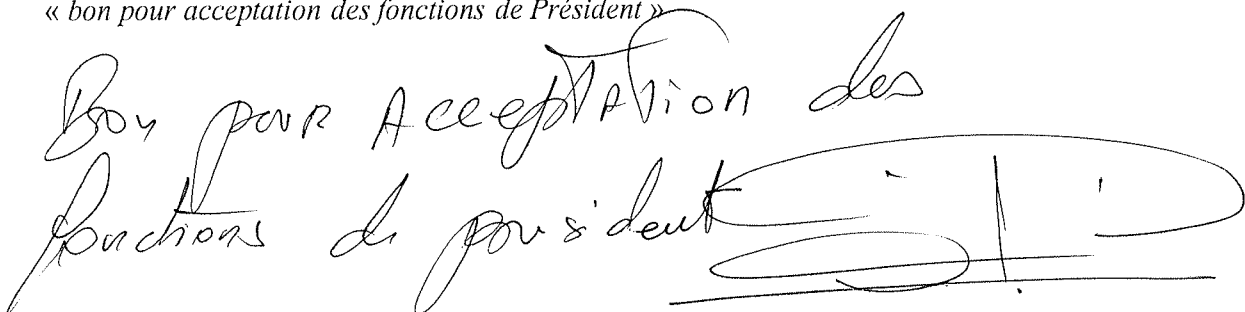 « bon pour acceptation des fonctions de Président »
Bon pour Acceptation des
fonctions de président